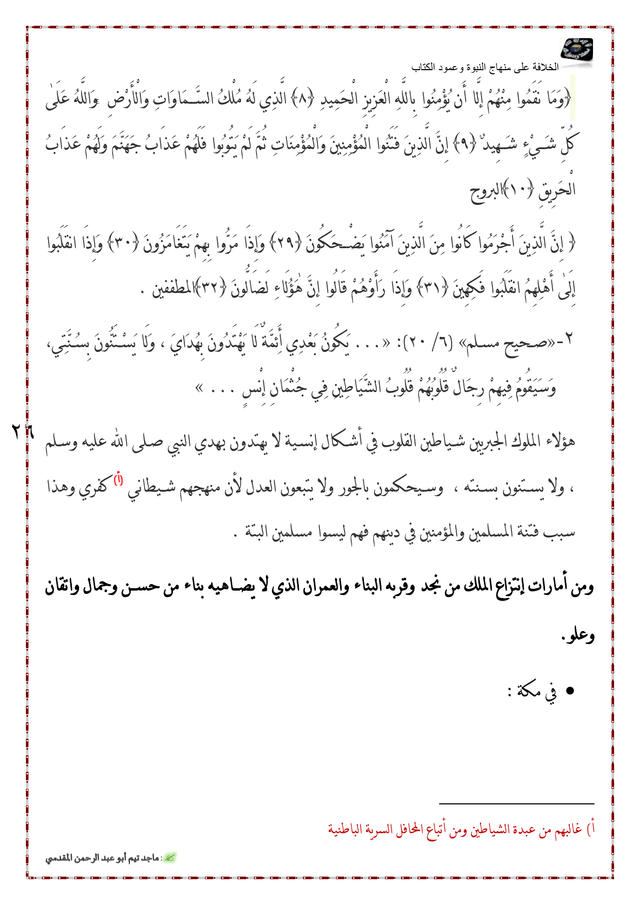 الخلافة على منهاج النبوة وعمود الكتاب
﴿وَمَا نَقَمُوا مِنْهُمْ إِلَّا أَن يُؤْمِنُوا بِاللَّهِ الْعَزِيزِ الْحَمِيدِ ﴿٨﴾ الَّذِي لَهُ مُلْكُ السَّمَاوَاتِ وَالْأَرْضِ ۚ وَاللَّهُ عَلَىٰ
كُلِّ شَيْءٍ شَهِيدٌ ﴿٩﴾ إِنَّ الَّذِينَ فَتَنُوا الْمُؤْمِنِينَ وَالْمُؤْمِنَاتِ ثُمَّ لَمْ يَتُوبُوا فَلَهُمْ عَذَابُ جَهَنَّمَ وَلَهُمْ عَذَابُ
الْحَرِيقِ ﴿١٠﴾البروج
﴿ إِنَّ الَّذِينَ أَجْرَمُوا كَانُوا مِنَ الَّذِينَ آمَنُوا يَضْحَكُونَ ﴿٢٩﴾ وَإِذَا مَرُّوا بِهِمْ يَتَغَامَزُونَ ﴿٣٠﴾ وَإِذَا انقَلَبُوا
إِلَىٰ أَهْلِهِمُ انقَلَبُوا فَكِهِينَ ﴿٣١﴾ وَإِذَا رَأَوْهُمْ قَالُوا إِنَّ هَٰؤُلَاءِ لَضَالُّونَ ﴿٣٢﴾المطففين .
٢-«صحيح مسلم» (٦/ ٢٠): «... يَكُونُ بَعْدِي أَئِمَّةٌ لَا يَهْتَدُونَ بِهُدَايَ ، وَلَا يَسْتَنُّونَ بِسُنَّتِي،
وَسَيَقُومُ فِيهِمْ رِجَالٌ قُلُوبُهُمْ قُلُوبُ الشَّيَاطِينِ فِي جُثْمَانِ إِنْسٍ ... »
٢٦
هؤلاء الملوك الجبريين شياطين القلوب في أشكال إنسية لا يهتدون بهدي النبي صلى الله عليه وسلم
، ولا يستنون بسنته ، وسيحكمون بالجور ولا يتبعون العدل لأن منهجهم شيطاني (أ) كفري وهذا
سبب فتنة المسلمين والمؤمنين في دينهم فهم ليسوا مسلمين البتة .
ومن أمارات إنتزاع الملك من نجد وقربه البناء والعمران الذي لا يضاهيه بناء من حسن وجمال واتقان
وعلو.
• في مكة :
أ) غالبهم من عبدة الشياطين ومن أتباع المحافل السرية الباطنية
: ماجد تيم أبو عبد الرحمن المقدسي